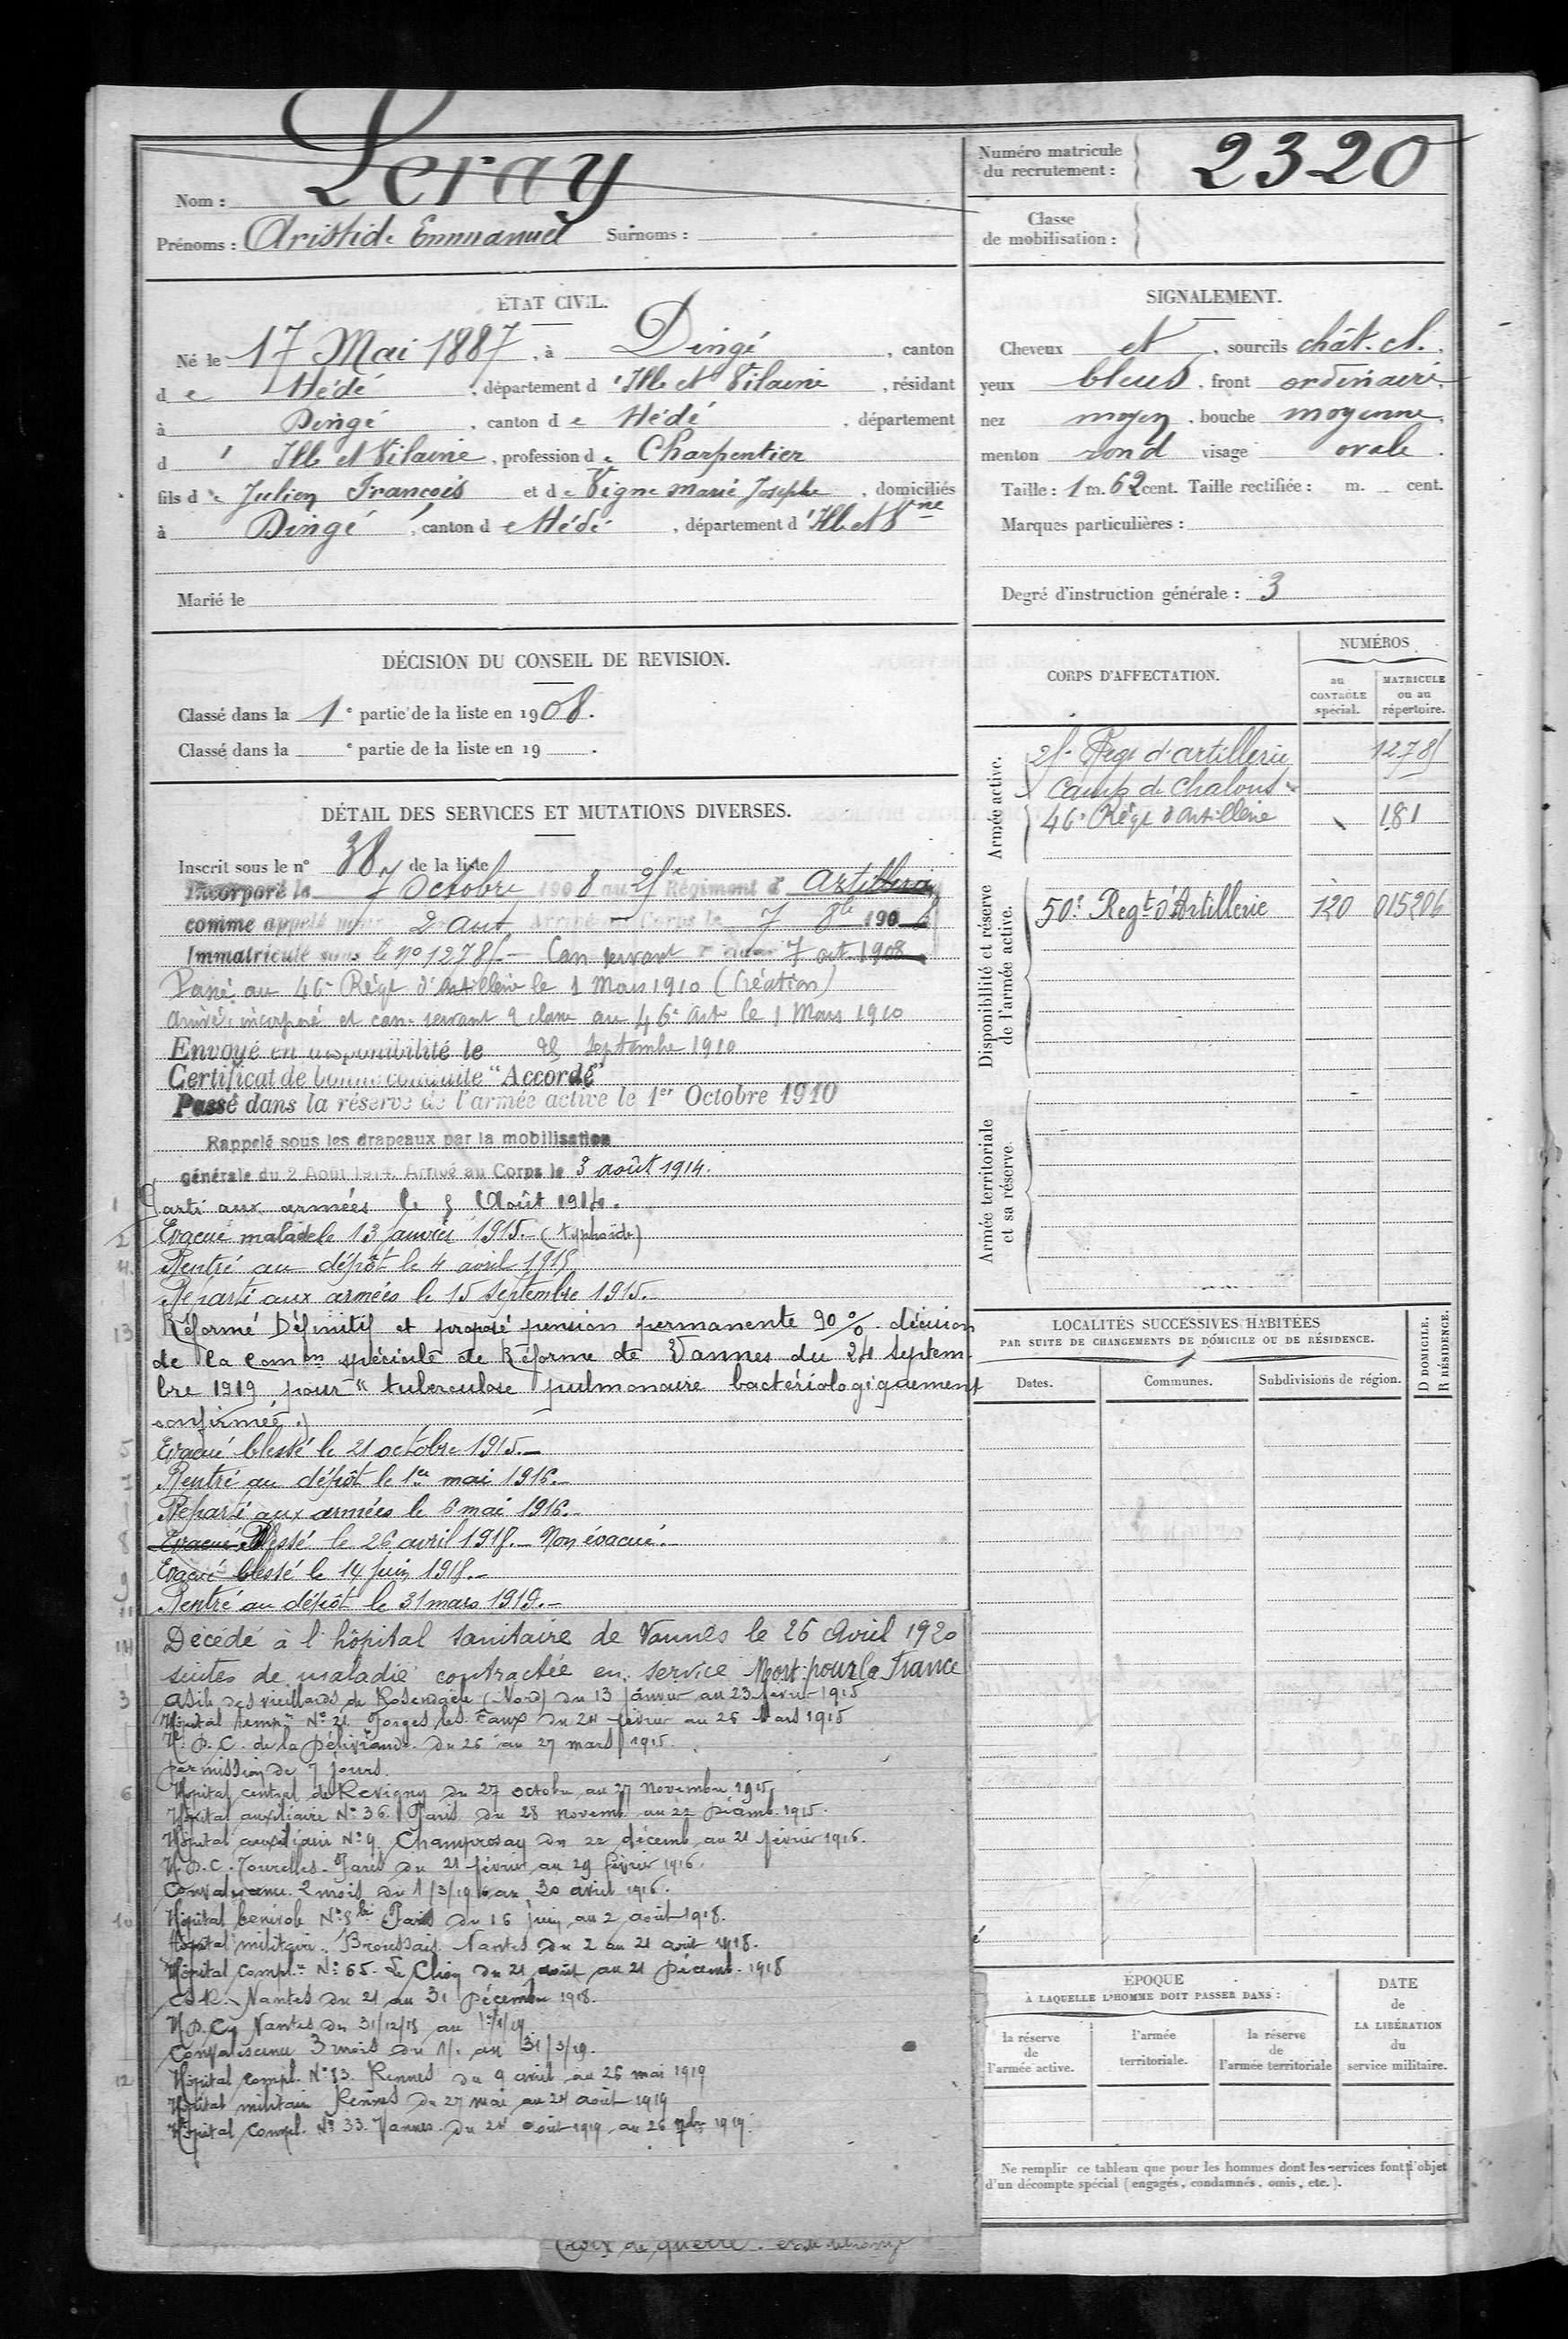 Nom : Leray
Prénoms : Aristide Emmanuel Surnoms :
Numéro matricule
du recrutement : 2320
Classe
de mobilisation :
ÉTAT CIVIL.
Né le 17 Mai 1887, à Dingé, canton
de Hédé, département d'Ille et Vilaine, résidant
à Dingé, canton de Hédé, département
d' Ille et Vilaine, profession de Charpentier
fils de Julien François et de Vigne Marie Josephe, domiciliés
à Dingé, canton de Hédé, département d'Ille et Vne
Marié le
SIGNALEMENT.
Cheveux et, sourcils chât. cl.
yeux bleus, front ordinaire,
nez moyen, bouche moyenne,
menton rond visage ovale.
Taille : 1 m. 62 cent. Taille rectifiée : m. cent.
Marques particulières :
Degré d'instruction générale : 3
DÉCISION DU CONSEIL DE REVISION.
Classé dans la 1e partie de la liste en 1908.
Classé dans la e partie de la liste en 19 .
DÉTAIL DES SERVICES ET MUTATIONS DIVERSES.
Inscrit sous le n° 38 de la liste
Incorporé le 7 Octobre 1908 au Régiment d'Artillerie
comme appelé pour 2 ans. Arrivé au Corps le 7 8bre 1908
Immatriculé sous le no 1278 Can. servant 7 oct. 1908
Passé au 46e Régt d'Artillerie le 1 Mars 1910 (Création)
Arrivé, incorporé et can. servant 2 classe au 46e Art. le 1 Mars 1910
Envoyé en disponibilité le 25 Septembre 1910
Certificat de bonne conduite "Accordé"
Passé dans la réserve de l'armée active le 1er Octobre 1910
Rappelé sous les drapeaux par la mobilisation
générale du 2 Août 1914. Arrivé au Corps le 3 août 1914.
1 Parti aux armées le 5 Août 1914.
2 Evacué malade le 13 janvier 1915. (typhoïde)
4 Rentré au dépôt le 4 avril 1915
Reparti aux armées le 15 septembre 1915.
13 Réformé Définitif et proposé pension permanente 90 % décision
de la Comon spéciale de Réforme de Vannes du 24 Septem
bre 1919 pour "tuberculose pulmonaire bactériologiquement
confirmée.
5 Evacué blessé le 21 octobre 1915.
7 Rentré au dépôt le 1er mai 1916.
Reparti aux armées le 6 mai 1916.
8 Evacué Blessé le 26 avril 1918. Non évacué.
9 Evacué blessé le 14 juin 1918.
11 Rentré au dépôt le 31 mars 1919.
14 Décédé à l'hôpital sanitaire de Vannes le 26 Avril 1920
suites de maladie contractée en service Mort pour la France
3 Asile des vieillards de Rosendaele (Nord) du 13 janvier au 23 février 1915
Hôpital temp. No 21 Forges les Eaux du 24 février au 26 Mars 1915
H. D. C. de la du 26 au 27 mars 1915.
permission de 7 jours.
6 Hôpital central de Revigny du 27 octobre au 27 novembre 1915
Hôpital auxiliaire No 36 Paris du 28 novemb. au 22 Décemb. 1915.
Hôpital auxiliaire No 9 Champrosay du 22 décemb. au 21 février 1916.
H.D.C. Tourelles-Paris du 21 février au 29 février 1916.
Convalescence 2 mois du 1/3/1916 au 30 avril 1916.
10 Hôpital bénévole No bis Paris du 16 juin au 2 août 1918.
Hôpital militaire Broussais Nantes du 2 au 21 août 1918.
Hôpital Complre No 65. Le Clion du 21 août au 21 Décemb. 1918
Nantes du 21 au 31 Décembre 1918.
H.D.C. Nantes du 31/12/18 au 1/1/19
Convalescence 3 mois du 1/1 au 31/3/19.
12 Hôpital Compl. No 33. Rennes du 9 avril au 26 mai 1919
Hôpital militaire Rennes du 27 mai au 24 août 1919
Hôpital Compl. No 33. Vannes. du 24 août 1919 au 26 7bre 1919.
Croix de guerre.
CORPS D'AFFECTATION.
NUMÉROS
au
CONTRÔLE
spécial.
MATRICULE
ou au
répertoire.
Armée active.
Regt d'artillerie
Camp de Chalons
46e Régt d'Artillerie 181
Disponibilité et réserve
de l'armée active.
50e Regt d'Artillerie 120 015206
Armée territoriale
et sa réserve.
LOCALITÉS SUCCESSIVES HABITÉES
PAR SUITE DE CHANGEMENTS DE DOMICILE OU DE RÉSIDENCE.
Dates. Communes. Subdivisions de région.
D DOMICILE.
R RÉSIDENCE.
ÉPOQUE
À LAQUELLE L'HOMME DOIT PASSER DANS :
la réserve
de
l'armée active.
l'armée
territoriale.
la réserve
de
l'armée territoriale
DATE
de
LA LIBÉRATION
du
service militaire.
Ne remplir ce tableau que pour les hommes dont les services font l'objet
d'un décompte spécial (engagés, condamnés, omis, etc.).